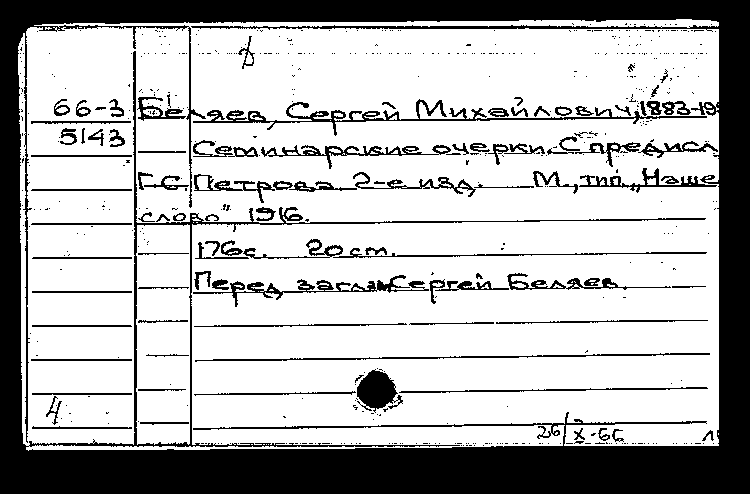 66-3 Беляев, Сергей Михайлович, 1883-19
5143 Семинарские очерки. С предисл
Г.С. Петрова. 2-е изд. М., тип. „Наше
слово", 1916.
176с. 20 см.
Перед загл. Сергей Беляев.
4
26/X-66